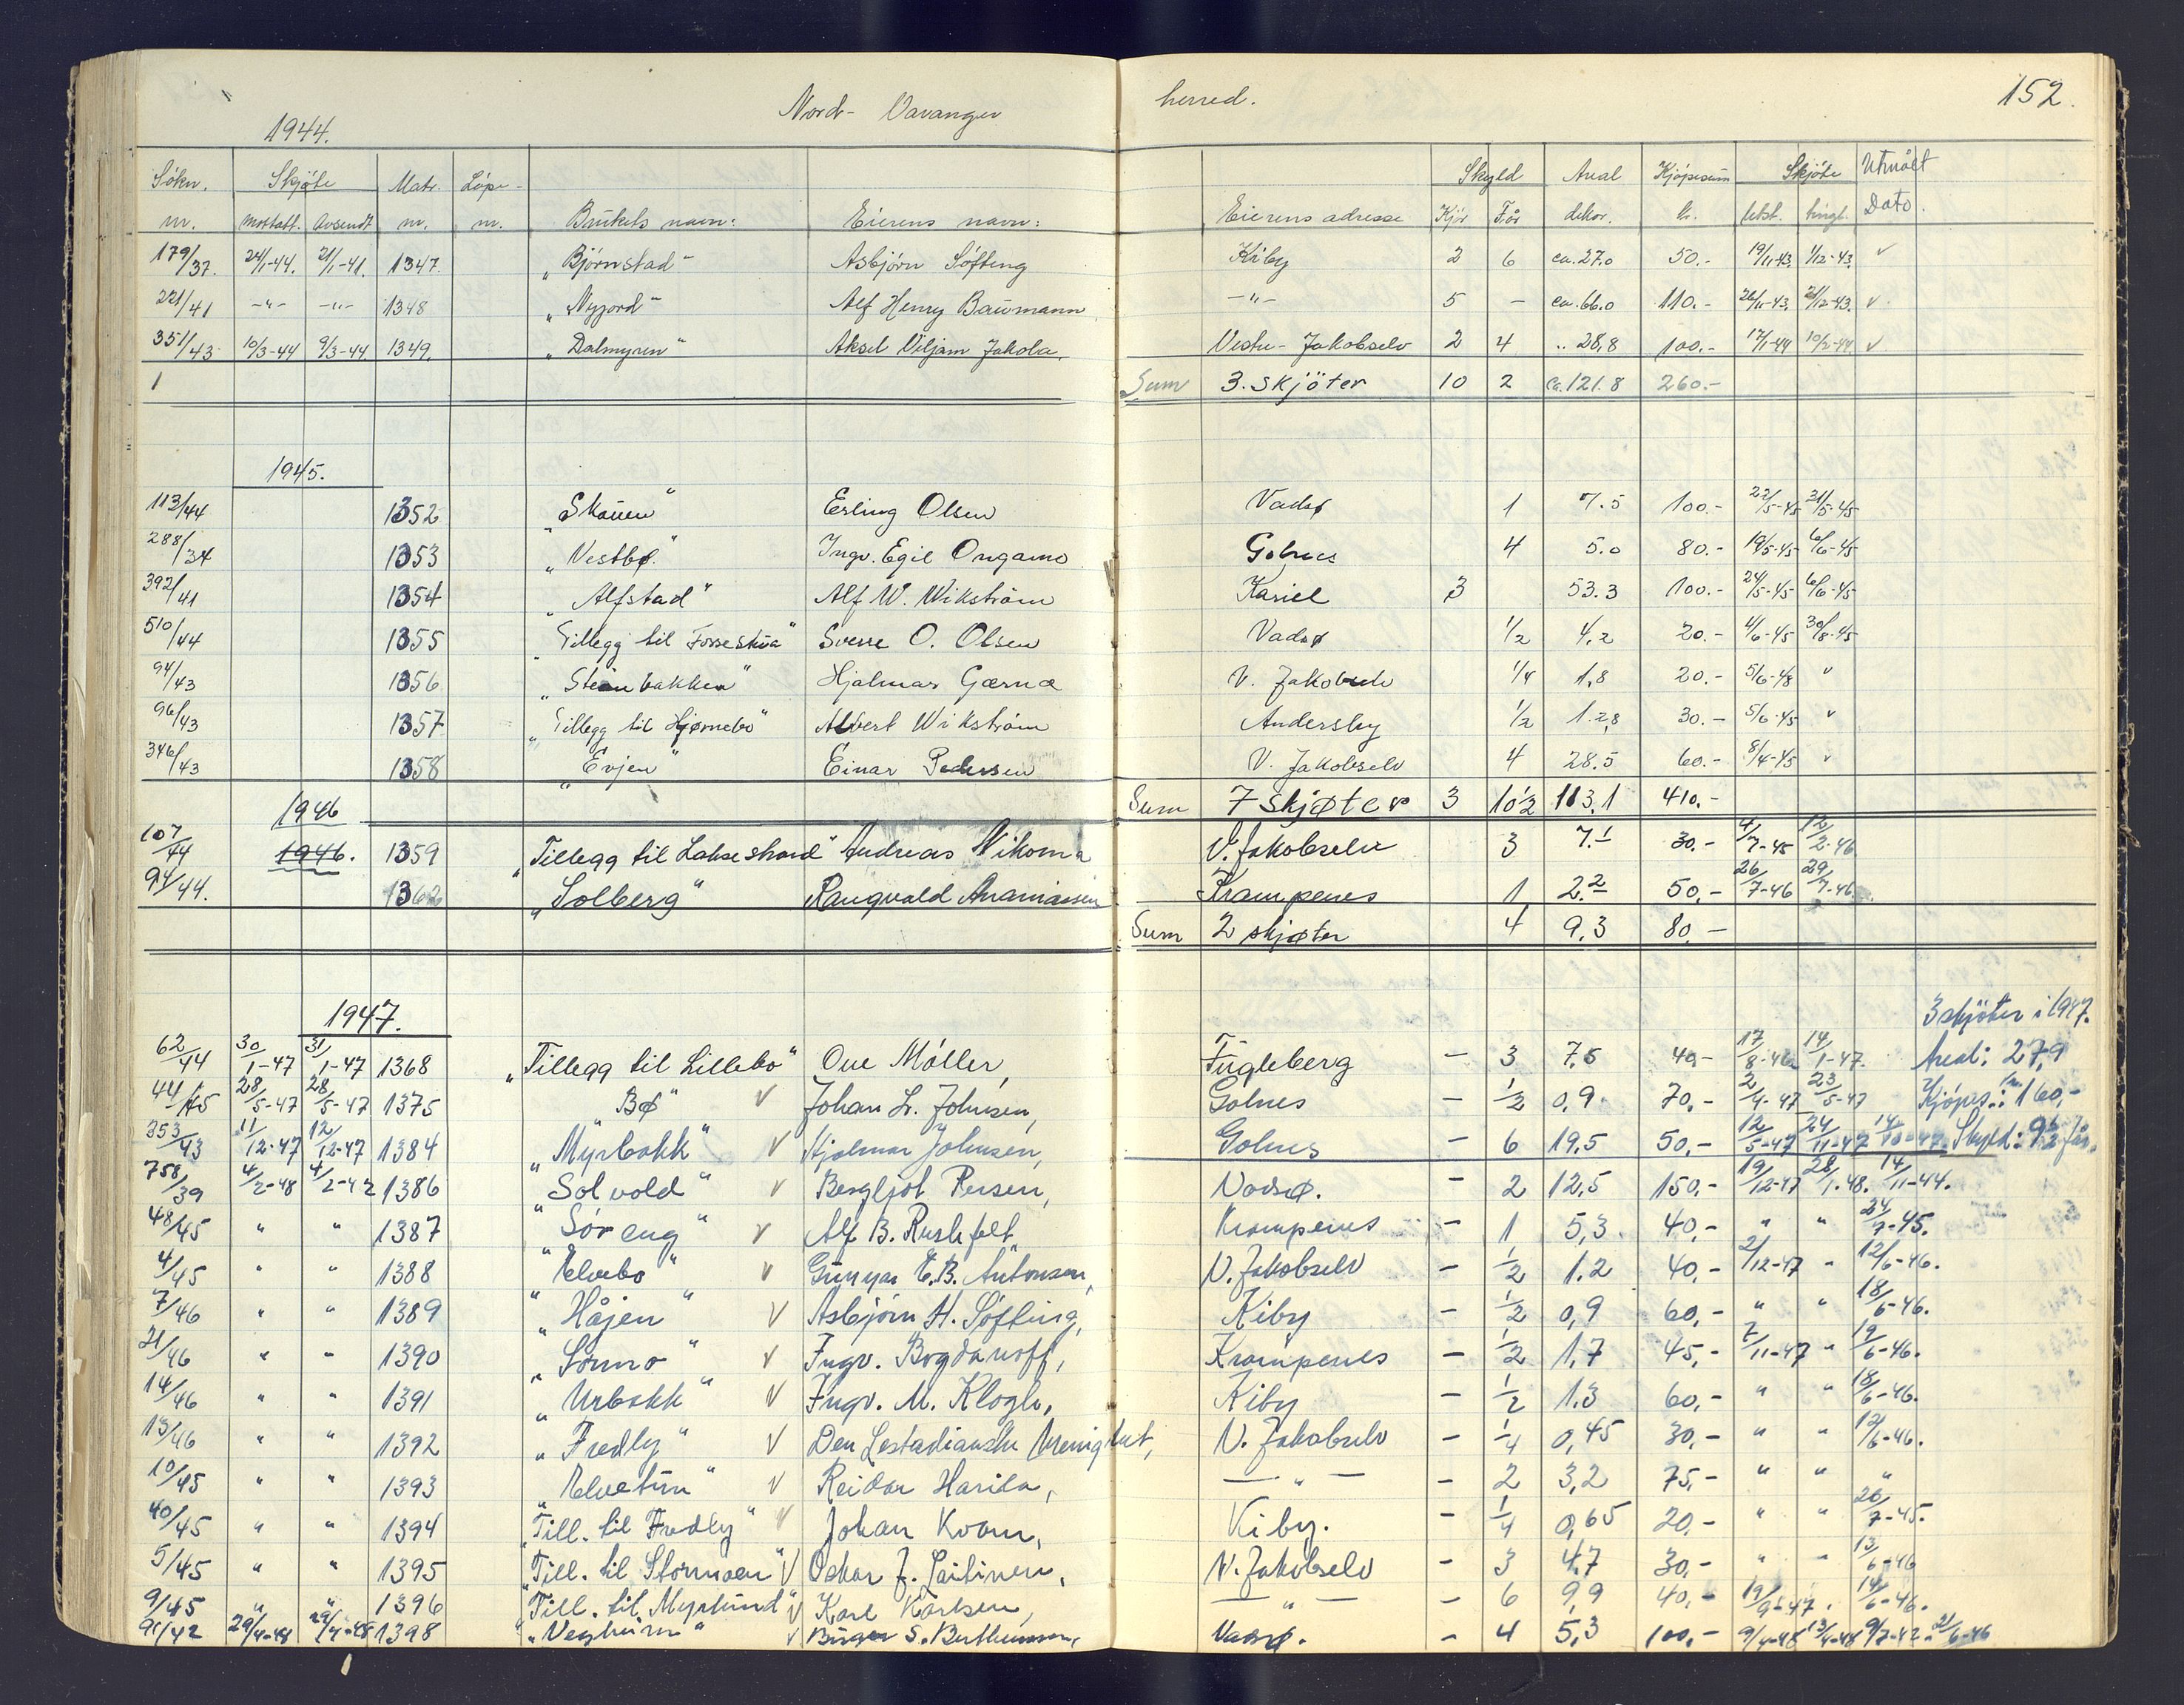 Nord- Varanger herred. 152.
1944.
Søkn. Skjøte Matr. Løpe- Skyld Areal Kjøpesum Skjøte Utmålt
nr. mottatt. Avsendt nr. nr. Brukets navn: Eierens navn: Eierens adresse Kjør Får dekar. kr. utst. tingl. Dato.
179/37. 24/1-44. 21/1-41. 1347. „Björnstad" Asbjörn Söfting Kiby 2 6 ca. 27.0 50.- 19/11-43. 1/12-43. v
221/41 -"- -"- 1348 „Nyjord" Alf Henry Baumann -"- 5 - ca. 66.0 110.- 26/11-43. 21/12-43. v
351/43 10/3-44 9/3-44 1349. „Dalmyren" Aksel Viljam Jakola, Vestre-Jakobselv 2 4 .. 28,8 100.- 17/1-44 10/2-44 v
1 Sum 3. skjöter 10 2 ca. 121.8 260.-
1945.
113/44 1352 „Skauen" Erling Olsen Vadsø 1 7.5 100.- 22/5-45 31/5-45
288/34 1353 „Vestbø" Ingv. Egil Ongamo Golnes 4 5.0 80.- 19/5-45 6/6-45
392/41 1354 „Alfstad" Alf W. Wikström Kariel 3 53.3 100.- 24/5-45 6/6-45
510/44 1355 „Tillegg til Fosseskua" Sverre O. Olsen Vadsø 1/2 4,2 20.- 4/6-45 30/8-45
94/43 1356 „Steinbakken" Hjalmar Gærnæ V. Jakobselv 1/4 1,8 20.- 5/6-48 "
96/43 1357 „Tillegg til Hjørnebo" Albert Wikström Andersby 1/2 1.2,8 30.- 5/6-45 "
346/43 1358 „Evjen" Einar Pedersen V. Jakobselv 4 28.5 60.- 8/4-45 "
1946 Sum 7 skjøter 3 10 1/2 113.1 410.-
107/44 1946. 1359 „Tillegg til Laksestrand" Andreas Nikoma V. Jakobselv 3 7.1 30.- 4/7-45 12/2-46
94/44. 1362 „Solberg" Rangvald Ananiassen Krampenes 1 2.2 50,- 26/7-46 29/7-46.
Sum 2 skjøter 4 9,3 80.-
1947. 3 skjöter i 1947.
62/44 30/1-47 31/1-47 1368 „Tillegg til Lillebo" Ove Möller, Fugleberg - 3 7,5 40,- 17/8-46 14/1-47. Areal: 27,9
44/45 28/5-47 28/5-47 1375 „Bø" v Johan L. Johnsen, Golnes - 1/2 0,9. 70,- 2/4-47 23/5-47 Kjöpes.: kr. 160,-
353/43 11/12-47 12/12-47 1384 „Myrbakk" v Hjalmar Johnsen, Golnes - 6 19,5 50,- 12/5-47 24/11-47 14/10-47. Skyld: 9 1/2 får.
758/39 4/2-48 4/2-42 1386 „Solvold" v Bergljot Persen, Vadsø. - 2 12,5 150,- 19/12-47 28/1-48. 14/11-44.
48/45 " " 1387 „Söreng" v Alf B. Rushfelt, Krampenes - 1 5,3 40,- " " 24/7-45.
4/45 " " 1388 „Elvebo" v Gunnar E.B. Antonsen, V. Jakobselv - 1/2 1.2 40,- 2/12-47 " 12/6-46.
7/46 " " 1389 „Håjen" v Asbjörn H. Söfting, Kiby - 1/2 0,9 60,- " " 18/6-46.
21/46 " " 1390 „Sørmo" v Ingv. Bogdanoff, Krampenes - 1/2 1,7 45,- 7/11-47 " 19/6-46.
14/46 " " 1391 „Urbakk" v Ingv. M. Klogh, Kiby - 1/2 1.3 60,- " " 18/6-46.
13/46 " " 1392 „Fredly" v Den Lestadianske Menighet, V. Jakobselv - 1/4 0,45 30,- " " 12/6-46.
10/45 " " 1393 „Elvetun" v Reidar Harila, - " - - 2 3,2 75,- " " "
40/45 " " 1394 „Till. til Fredly" v Johan Kvam, Kiby. - 1/4 0,65 20,- " " 26/7-45.
5/45 " " 1395 „Till. til Stormoen" v Oskar J. Laitinen, V. Jakobselv - 3 4,7 30,- " " 13/6-46
9/45 " " 1396 „Till. til Myrlund" v Karl Karlsen, - " - - 6 9,9 40,- 19/9-47. 14/6-46.
91/42 29/4-48 29/4-48 1398 „Veghuim" v Birger S. Berthinussen, Vadsø. - 4 5,3 100,- 9/4-48 13/4-48 9/7-42 - 21/6-46